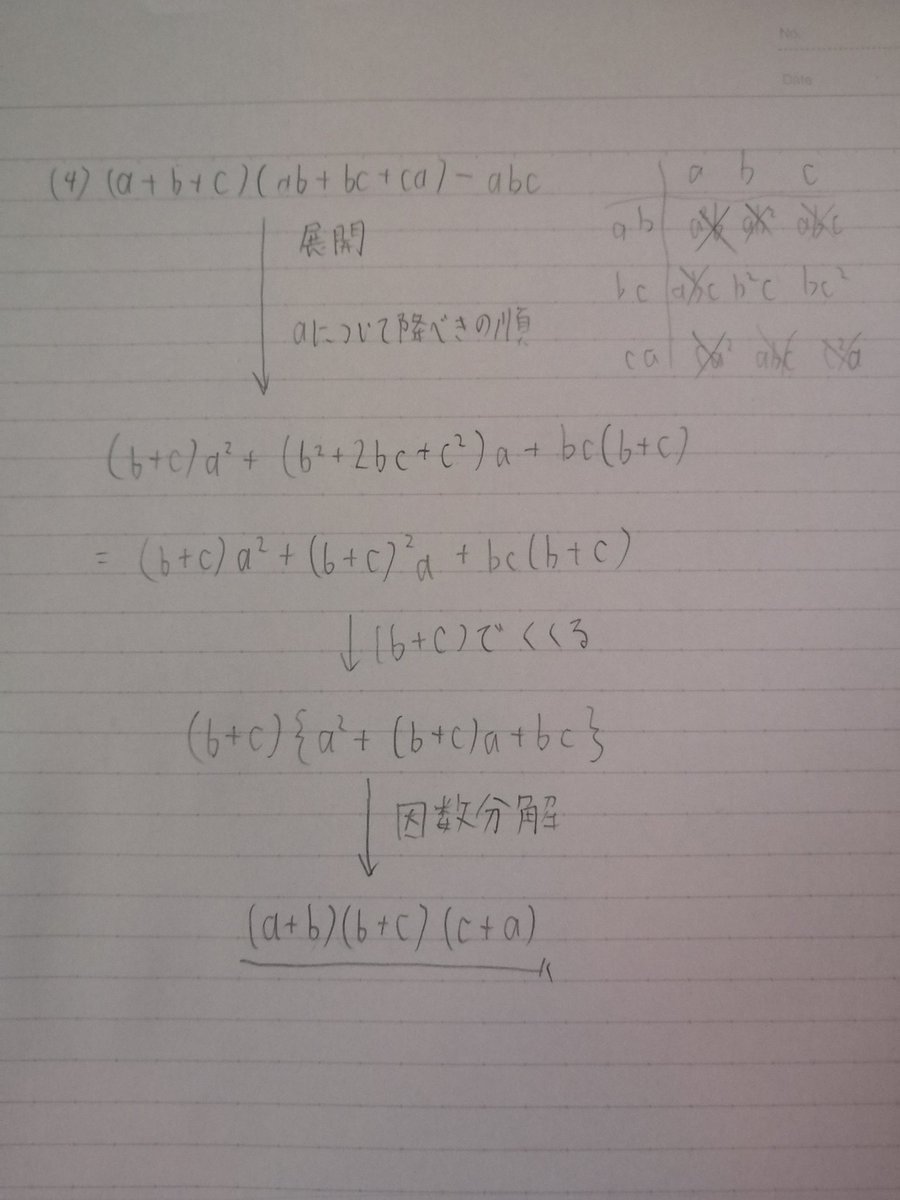 No.
Date
(4) (a+b+c)(ab+bc+ca)-abc
展開
aについて降べきの順
a b c
ab a²b ab² abc
bc abc b²c bc²
ca ca² abc c²a
(b+c)a²+(b²+2bc+c²)a+bc(b+c)
=(b+c)a²+(b+c)²a+bc(b+c)
(b+c)でくくる
(b+c){a²+(b+c)a+bc}
因数分解
(a+b)(b+c)(c+a)